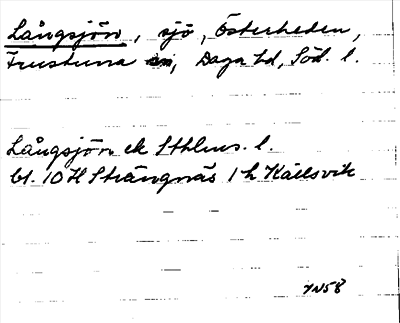 Långsjön, sjö, Österheden,
Frustuna sn, Daga hd, Söd. l.
Långsjön ek Sthlms. l.
bl. 10 H Strängnäs 1 h Kållsvik
VN58